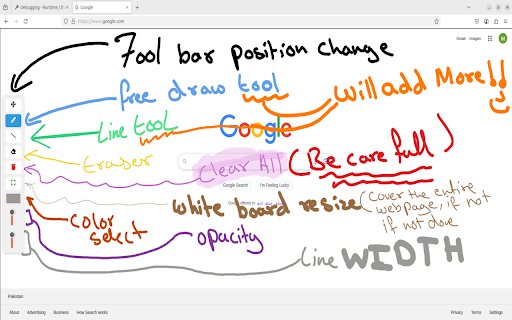 Debugging - Runtime / E
Google
https://www.google.com
Gmail Images M
Tool bar position change
free draw tool
will add More!!
Line tool
Google
Eraser
Clear All (Be care full)
Google Search I'm Feeling Lucky
white board resize (cover the entire webpage, if not if not done
Google offered in:
color select
opacity
Line WIDTH
Pakistan
About Advertising Business How Search works Privacy Terms Settings